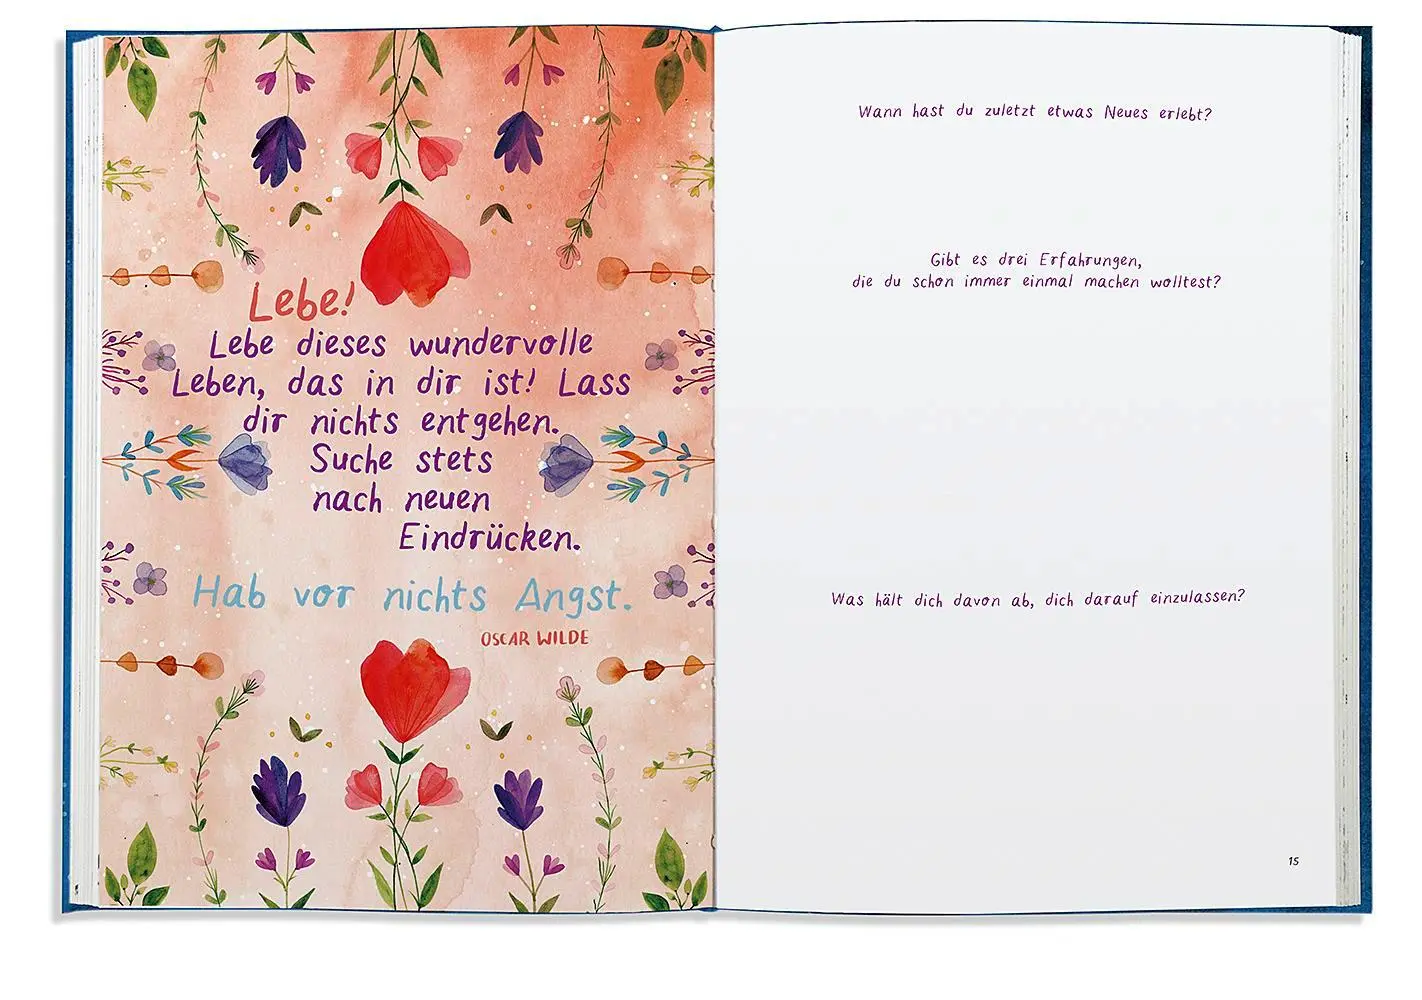 Lebe!
Lebe dieses wundervolle
Leben, das in dir ist! Lass
dir nichts entgehen.
Suche stets
nach neuen
Eindrücken.
Hab vor nichts Angst.
OSCAR WILDE
Wann hast du zuletzt etwas Neues erlebt?
Gibt es drei Erfahrungen,
die du schon immer einmal machen wolltest?
Was hält dich davon ab, dich darauf einzulassen?
15